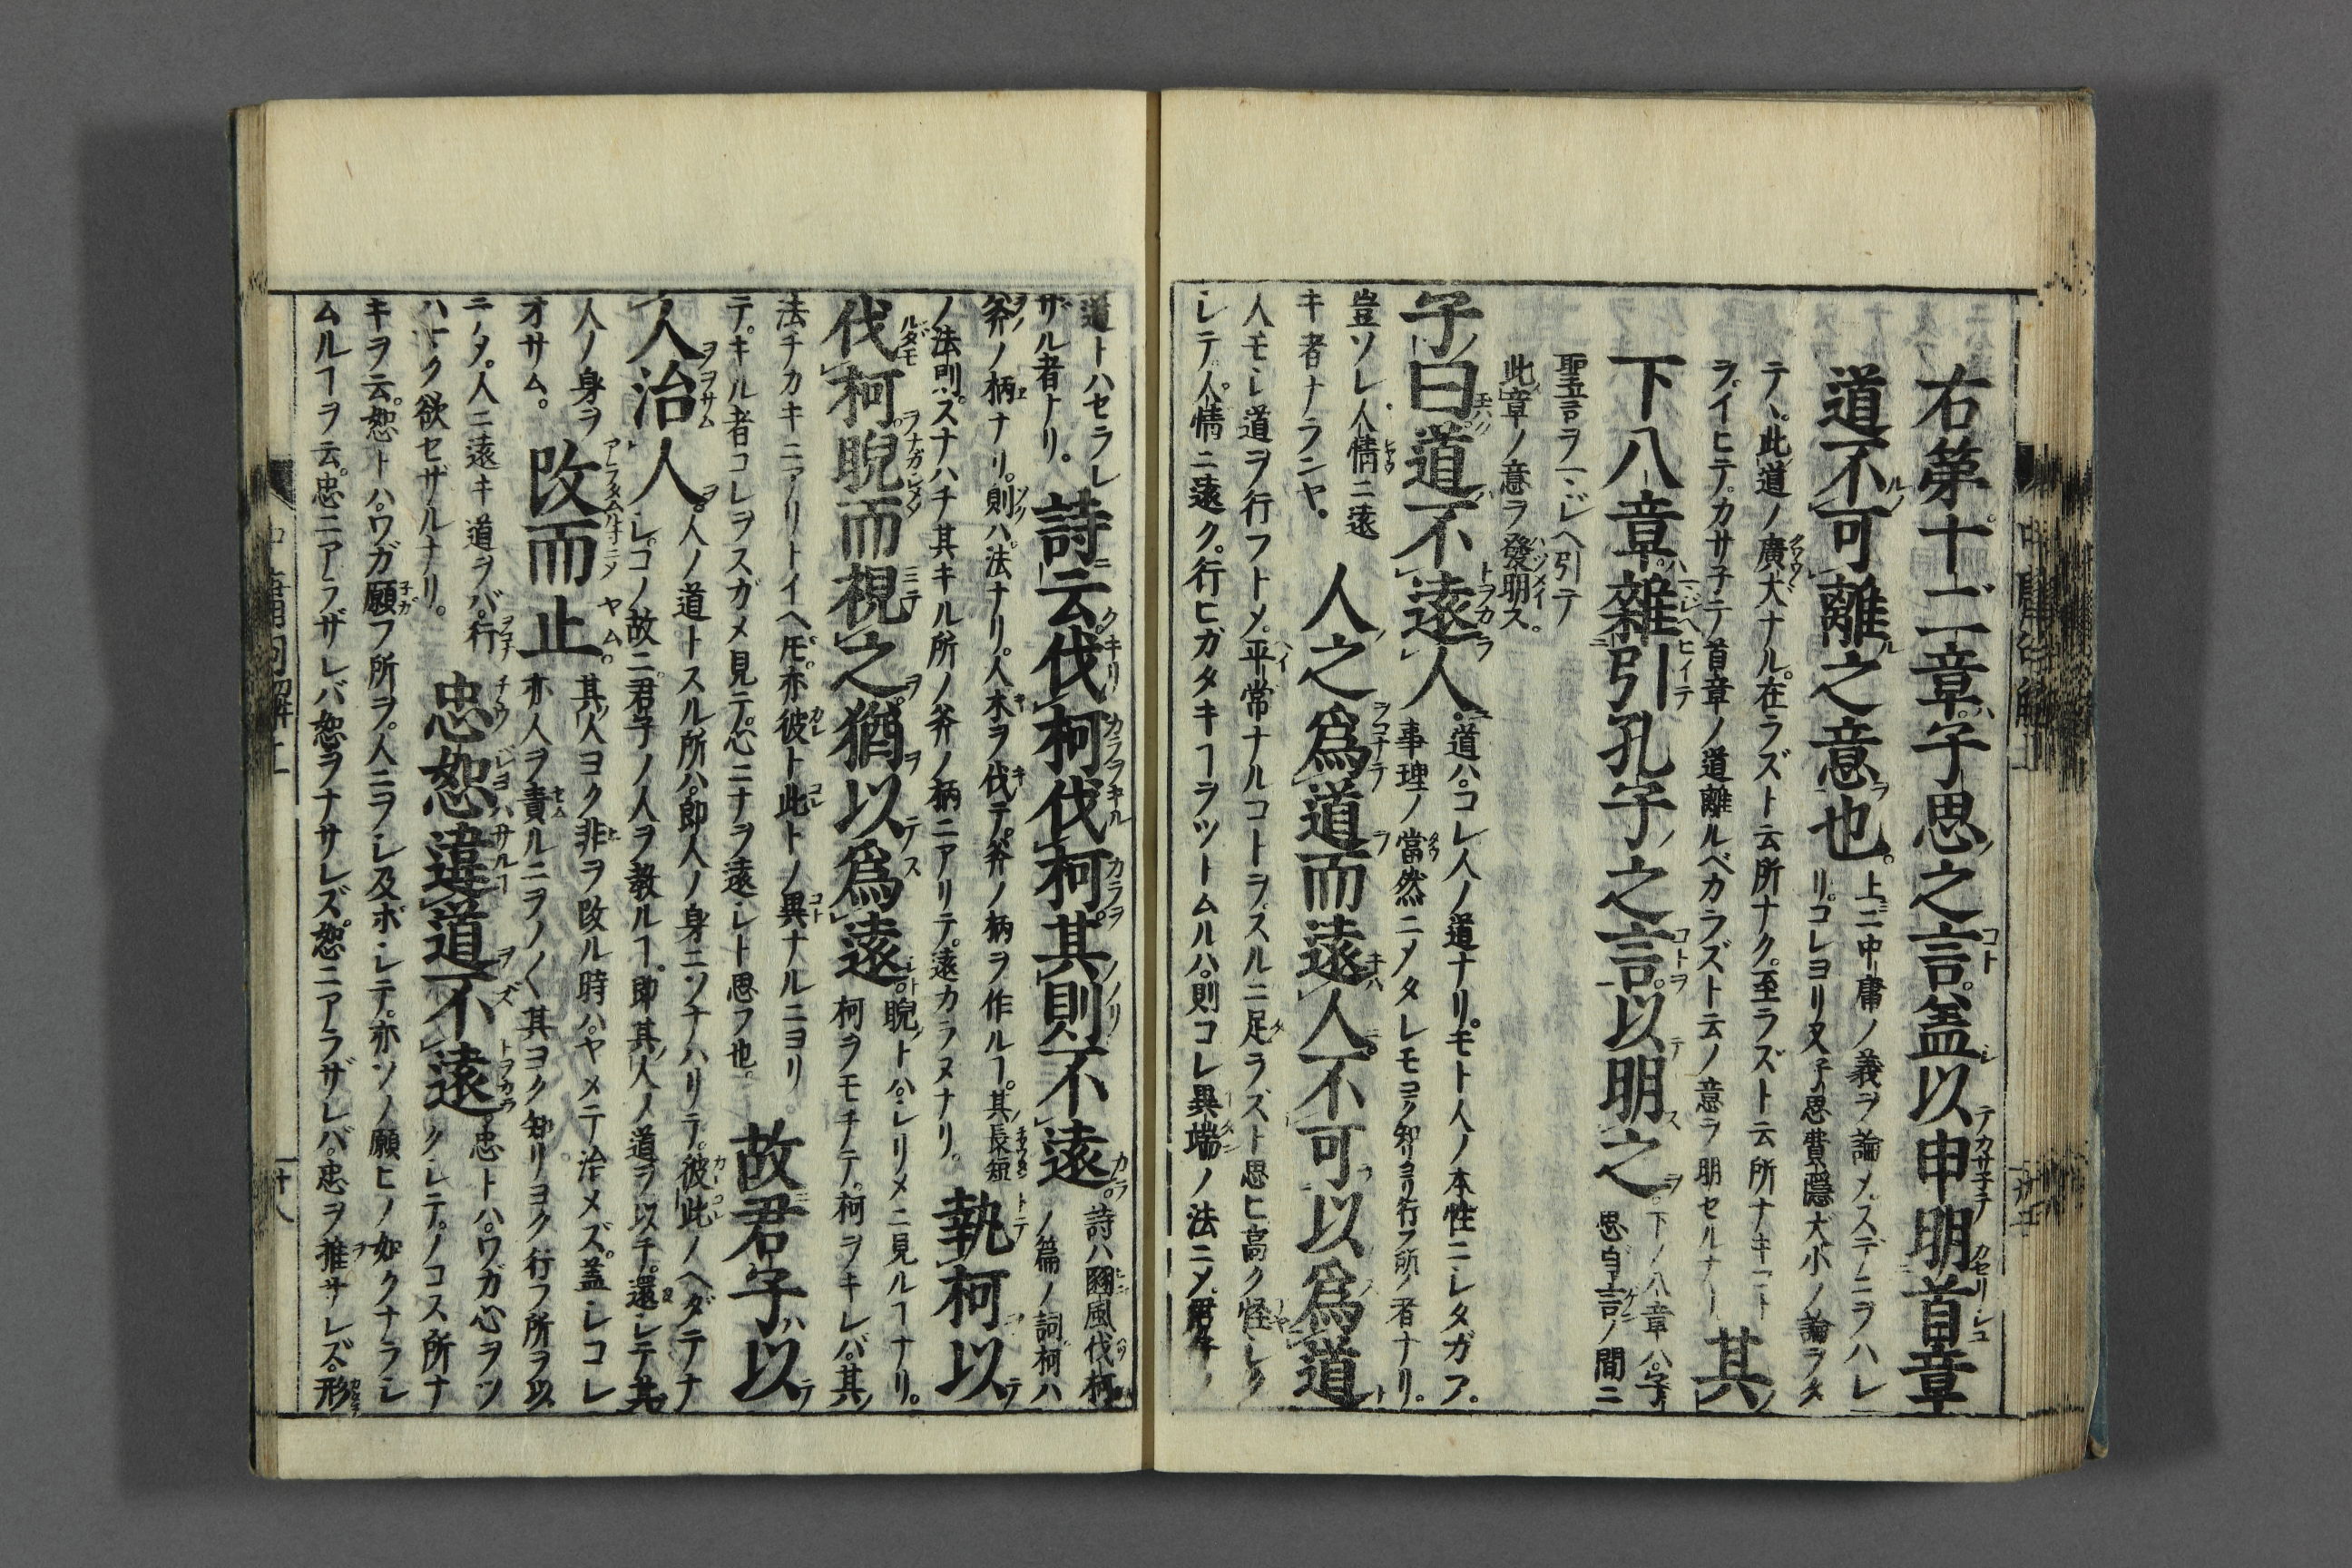 右第十二章子思之言蓋以申明首章
道不可離之意也。上ニ中庸ノ義ヲ論メ。スデニヲハレ
リ。コレヨリ又子思費隱大小ノ論ヲタ
テ、此道ノ廣大ナル。在ラズト云所ナク。至ラズト云所ナキ
ヲイヒテ。カサ子テ首章ノ道離ルベカラズト云ノ意ヲ明セルナ 其
下八章雜引孔子之言。以明之。下ノ八章ハ。子
思自言ノ間ニ
聖言ヲマジヘ引テ
此章ノ意ヲ發明ス。
子曰道不遠人。道ハ。コレ人ノ道ナリ。モト人ノ本性ニシタガフ。
事理ノ當然ニメ。タレモヨク知リヨリ行フ所ノ者ナリ。
豈ソレ人情ニ遠
キ者ナランヤ。人之爲道而遠人。不可以爲道
人モシ道ヲ行フトメ。平常ナルコトヲスルニ足ラズト思ヒ高ク怪シク
シテ。人情ニ遠ク。行ヒガタキヿヲツトムルハ。則コレ異端ノ法ニメ。君子ノ
道トハセラレ
ザル者ナリ。詩云伐柯伐柯其則不遠。詩ハ豳風伐柯
ノ篇ノ詞柯ハ
斧ノ柄ナリ。則ハ法ナリ。人木ヲ伐テ。斧ノ柄ヲ作ルヿ。其長短
ノ法則。スナハチ其キル所ノ斧ノ柄ニアリテ。遠カラヌナリ。執柯以
伐柯睨而視之猶以爲遠。睨トハ。シリメニ見ルヿナリ。
柯ヲモチテ。柯ヲキレバ。其
法チカキニアリトイヘ𪜈。亦彼ト此トノ異ナルニヨリ
テ。キル者コレヲスガメ見テ。心ニナヲ遠シト思フ也。故君子以
人治人。人ノ道トスル所ハ。即人ノ身ニソナハリテ。彼此ノヘダテナ
シ。コノ故ニ。君子ノ人ヲ教ルヿ。即其人ノ道ヲ以チ。還シテ其
人ノ身ヲ
オサム。改而止。其人ヨク非ヲ改ル時ハ。ヤメテ治メズ。蓋シコレ
亦人ヲ責ルニヲノ〱其ヨク知リヨク行フ所ヲ以
ニメ。人ニ遠キ道ヲバ。行
ハヿク欲セザルナリ。忠恕違道不遠。忠トハ。ワガ心ヲツ
クシテ。ノコス所ナ
キヲ云。恕トハ。ワガ願フ所ヲ。人ニヲシ及ボシテ。亦ソノ願ヒノ如クナラシ
ムルヿヲ云。忠ニアラザレバ恕ヲナサレズ。恕ニアラザレバ。忠ヲ推サレズ。形
中庸句解十一
十八